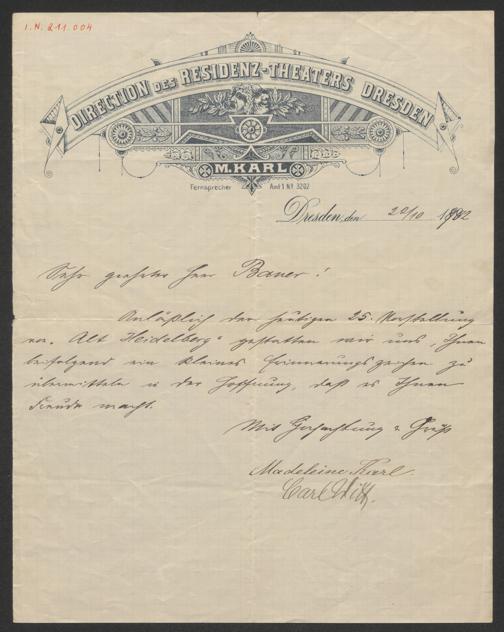 I.N. 211.004
DIRECTION DES RESIDENZ-THEATERS DRESDEN
M. KARL
Fernsprecher Amt 1 No 3202
Dresden, den 20/10 1902
Sehr geehrter Herr Bauer!
Anläßlich der heutigen 25. Vorstellung
von „Alt Heidelberg" gestatten wir uns, Ihnen
beifolgend ein kleines Erinnerungszeichen zu
übermitteln in der Hoffnung, daß es Ihnen
Freude macht.
Mit Hochachtung & Gruß
Madeleine Karl.
Carl Witt.